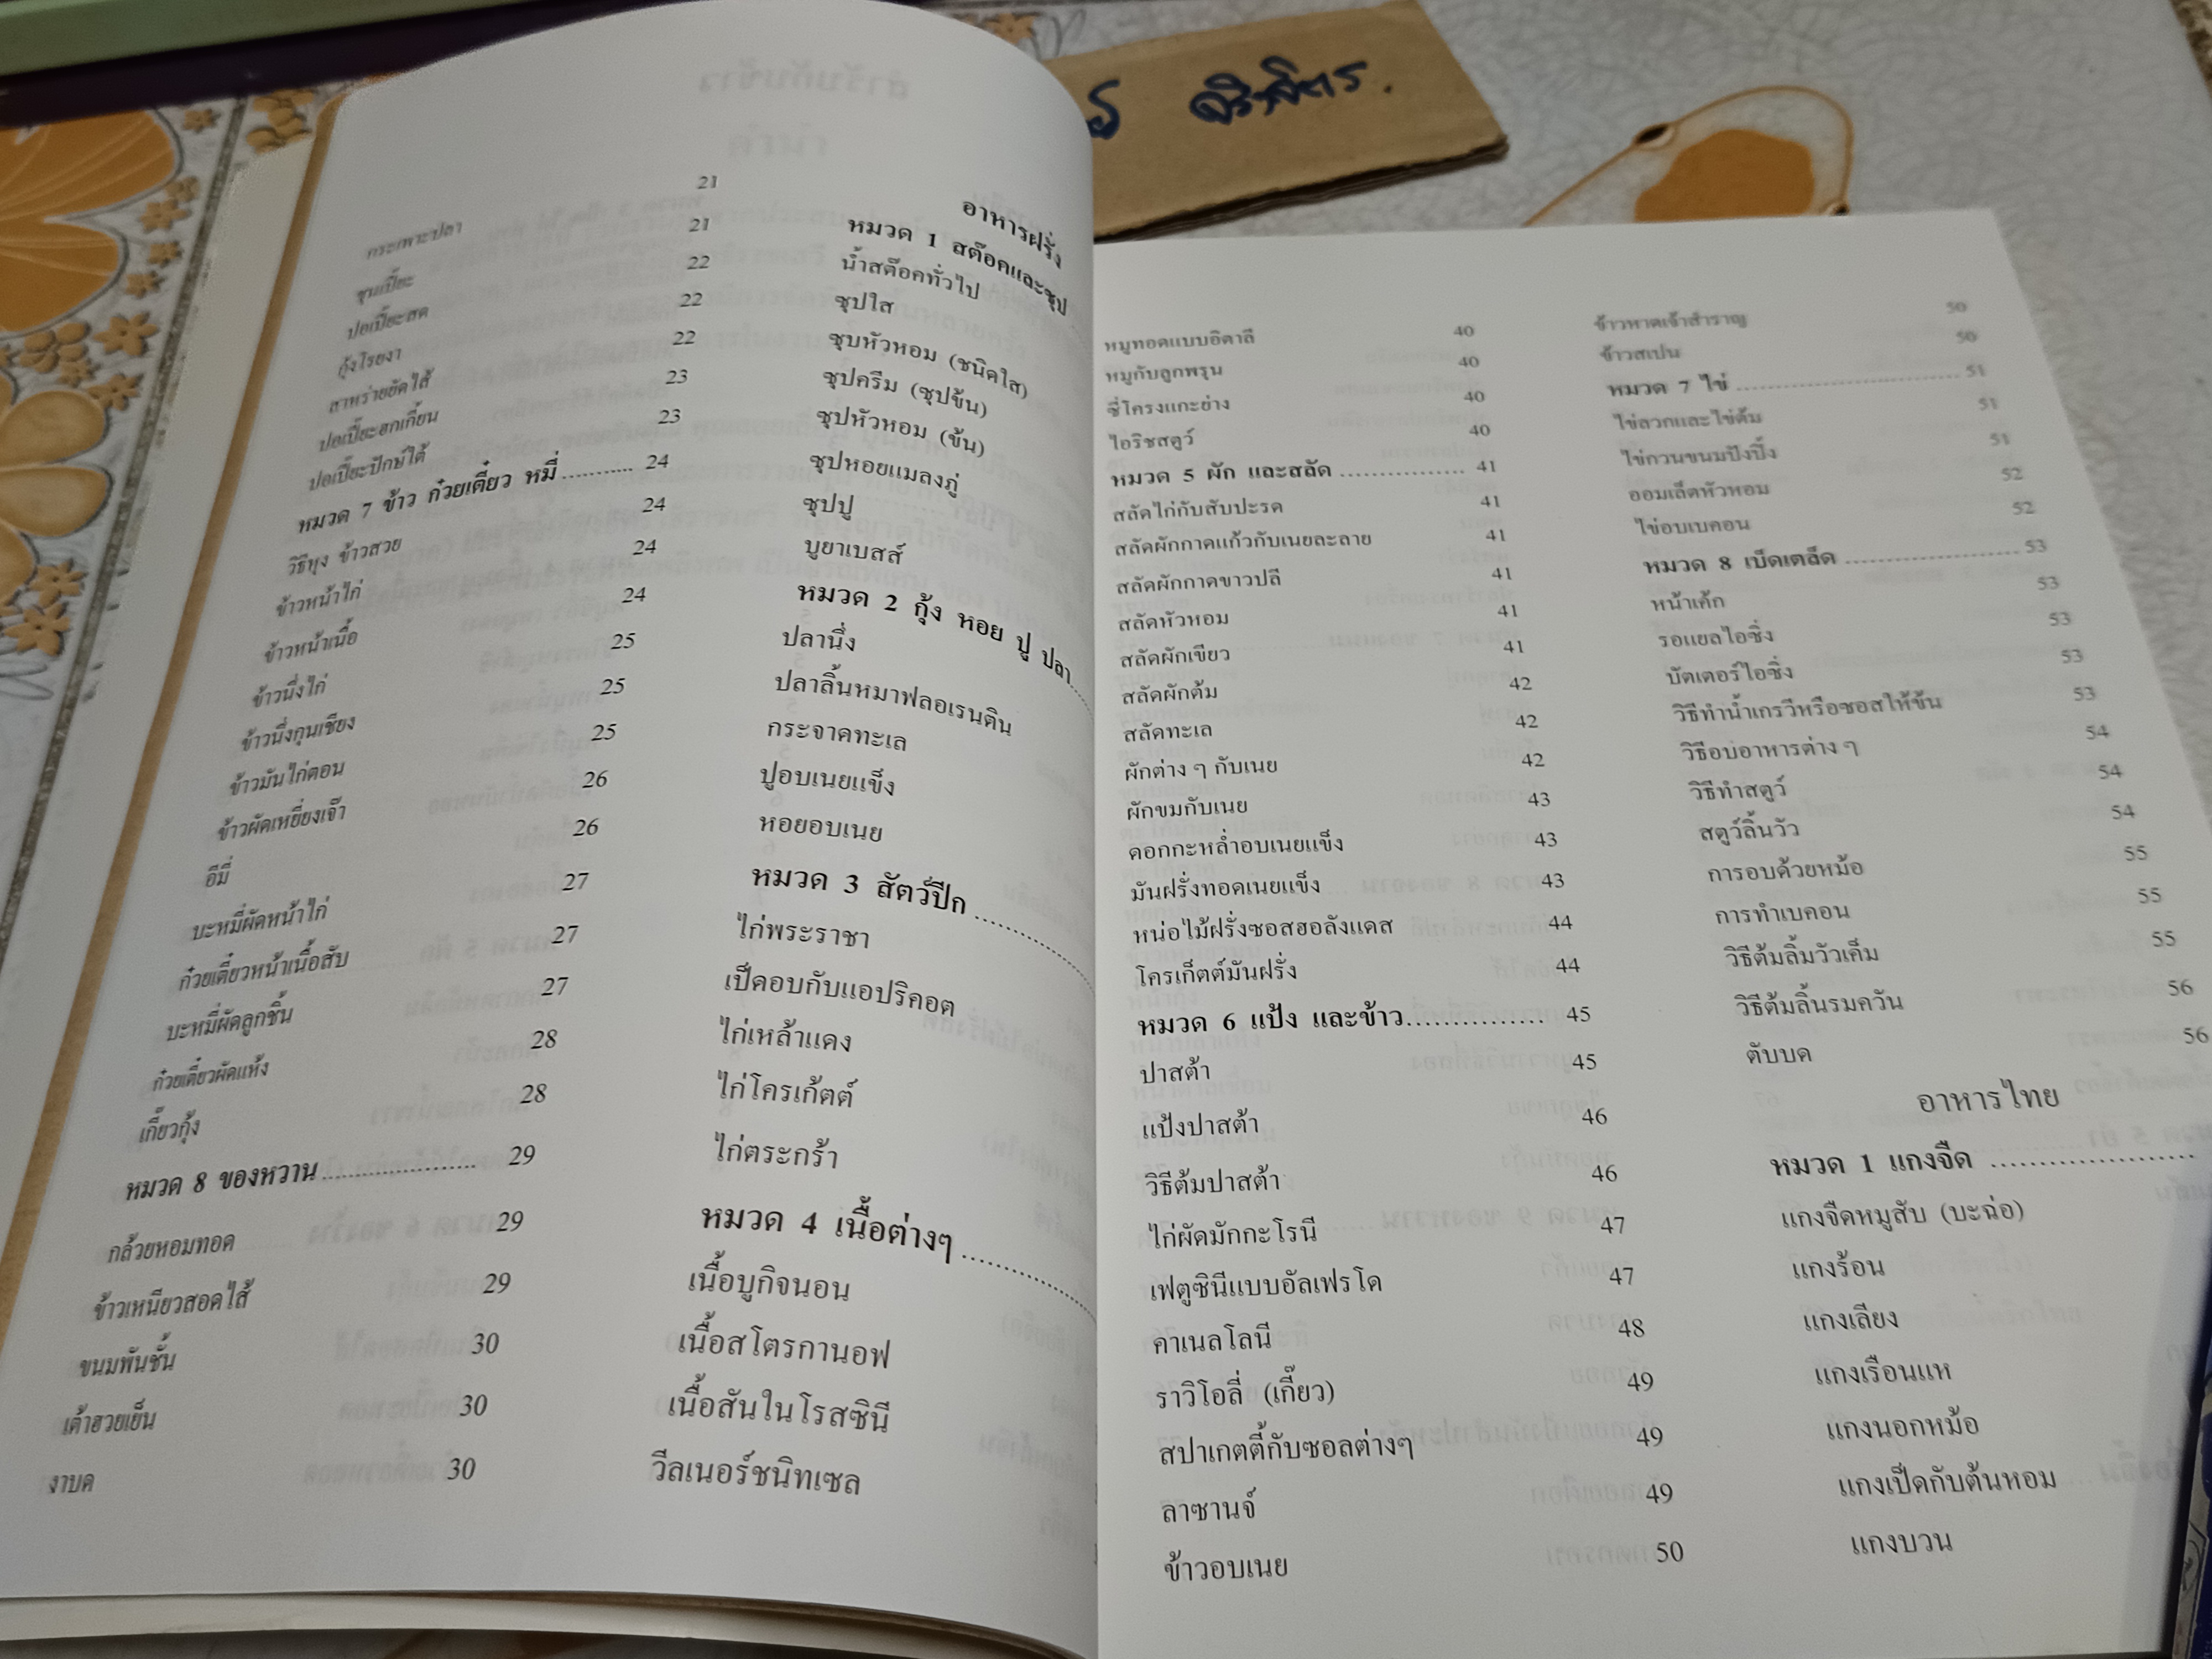 กระเพาะปลา 21
ซุนเปี๊ยะ 21
ปอเปี๊ยะสด 22
กุ้งโรยงา 22
สาหร่ายยัดไส้ 22
ปอเปี๊ยะฮกเกี้ยน 23
ปอเปี๊ยะปักษ์ใต้ 23
หมวด 7 ข้าว ก๋วยเตี๋ยว หมี่ ........... 24
วิธีหุง ข้าวสวย 24
ข้าวหน้าไก่ 24
ข้าวหน้าเนื้อ 24
ข้าวนึ่งไก่ 25
ข้าวนึ่งกุนเชียง 25
ข้าวมันไก่ตอน 25
ข้าวผัดเหยี่ยงเจ๊า 26
อีมี่ 26
บะหมี่ผัดหน้าไก่ 27
ก๋วยเตี๋ยวหน้าเนื้อสับ 27
บะหมี่ผัดลูกชิ้น 27
ก๋วยเตี๋ยวผัดแห้ง 28
เกี๊ยวกุ้ง 28
หมวด 8 ของหวาน ...................... 29
กล้วยหอมทอด 29
ข้าวเหนียวสอดไส้ 29
ขนมพันชั้น 30
เต้าฮวยเย็น 30
งาบด 30
อาหารฝรั่ง
หมวด 1 สต๊อคและซุป
น้ำสต๊อคทั่วไป
ซุปใส
ซุบหัวหอม (ชนิดใส)
ซุปครีม (ซุปข้น)
ซุปหัวหอม (ข้น)
ซุปหอยแมลงภู่
ซุปปู
บูยาเบสส์
หมวด 2 กุ้ง หอย ปู ปลา
ปลานึ่ง
ปลาลิ้นหมาฟลอเรนติน
กระจาดทะเล
ปูอบเนยแข็ง
หอยอบเนย
หมวด 3 สัตว์ปีก ....................
ไก่พระราชา
เป็ดอบกับแอปริคอต
ไก่เหล้าแดง
ไก่โครเก้ตต์
ไก่ตระกร้า
หมวด 4 เนื้อต่างๆ ....................
เนื้อบูกิจนอน
เนื้อสโตรกานอฟ
เนื้อสันในโรสซินี
วีลเนอร์ชนิทเซล
หมูทอดแบบอิตาลี 40
หมูกับลูกพรุน 40
ซี่โครงแกะย่าง 40
ไอริชสตูว์ 40
หมวด 5 ผัก และสลัด ................ 41
สลัดไก่กับสับปะรด 41
สลัดผักกาดแก้วกับเนยละลาย 41
สลัดผักกาดขาวปลี 41
สลัดหัวหอม 41
สลัดผักเขียว 41
สลัดผักต้ม 42
สลัดทะเล 42
ผักต่าง ๆ กับเนย 42
ผักขมกับเนย 43
ดอกกะหล่ำอบเนยแข็ง 43
มันฝรั่งทอดเนยแข็ง 43
หน่อไม้ฝรั่งซอสฮอลังแดส 44
โครเก็ตต์มันฝรั่ง 44
หมวด 6 แป้ง และข้าว................ 45
ปาสต้า 45
แป้งปาสต้า 46
วิธีต้มปาสต้า 46
ไก่ผัดมักกะโรนี 47
เฟตูซินีแบบอัลเฟรโด 47
คาเนลโลนี 48
ราวิโอลี่ (เกี๊ยว) 49
สปาเกตตี้กับซอสต่างๆ 49
ลาซานจ์ 49
ข้าวอบเนย 50
ข้าวหาดเจ้าสำราญ 50
ข้าวสเปน 50
หมวด 7 ไข่ ............................ 51
ไข่ลวกและไข่ต้ม 51
ไข่กวนขนมปังปิ้ง 51
ออมเล็ตหัวหอม 52
ไข่อบเบคอน 52
หมวด 8 เบ็ดเตล็ด ...................... 53
หน้าเค้ก 53
รอแยลไอซิ่ง 53
บัตเตอร์ไอซิ่ง 53
วิธีทำน้ำเกรวีหรือซอสให้ข้น 53
วิธีอบอาหารต่าง ๆ 54
วิธีทำสตูว์ 54
สตูว์ลิ้นวัว 54
การอบด้วยหม้อ 55
การทำเบคอน 55
วิธีต้มลิ้มวัวเค็ม 55
วิธีต้มลิ้นรมควัน 56
ตับบด 56
อาหารไทย
หมวด 1 แกงจืด ......................
แกงจืดหมูสับ (บะฉ่อ)
แกงร้อน
แกงเลียง
แกงเรือนแห
แกงนอกหม้อ
แกงเป็ดกับต้นหอม
แกงบวน